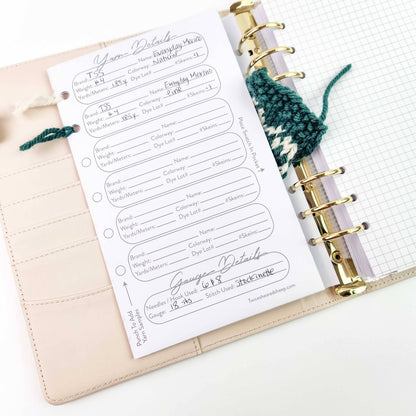 Yarn Details
Brand: TSS Name: Everyday Merino
Weight: #4 Colorway: Natural
Yards/Meters: 185y Dye Lot# #Skeins: 2
Brand: TSS Name: Everyday Merino
Weight: #4 Colorway: Pine
Yards/Meters: 185y Dye Lot# #Skeins: 2
Brand: Name:
Weight: Colorway:
Yards/Meters: Dye Lot# #Skeins:
Brand: Name:
Weight: Colorway:
Yards/Meters: Dye Lot# #Skeins:
Brand: Name:
Weight: Colorway:
Yards/Meters: Dye Lot# #Skeins:
Brand: Name:
Weight: Colorway:
Yards/Meters: Dye Lot# #Skeins:
Place Swatch In Pocket
Gauge Details
Needles / Hook Used: 6 & 8 Stitch Used: Stockinette
Gauge: 18 sts
Twoseinedsheep.com
Punch To Add
Yarn Samples